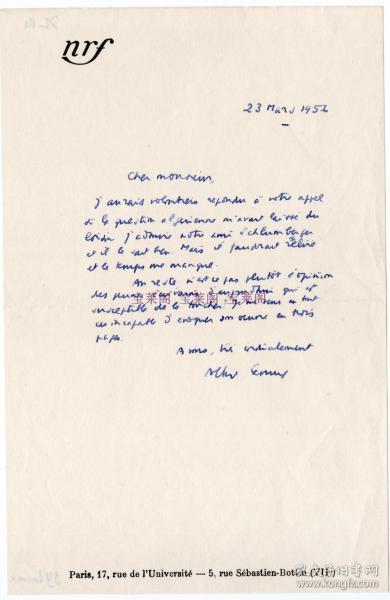 nrf
23 Mars 1956
Cher monsieur,
j'aurais volontiers répondu à votre appel
si la question algérienne m'avait laissé du
loisir. J'admire notre ami Schlumberger
et il le sait bien. Mais il faudrait relire
et le temps me manque.
Au reste n'est-ce pas plutôt l'opinion
des jeunes écrivains d'aujourd'hui qui est
susceptible de le toucher. Je me sens en tout
宝莱阁 宝莱阁 宝莱阁
cas incapable d'évoquer son œuvre en trois
pages.
A vous, très cordialement
Albert Camus
Paris, 17, rue de l'Université — 5, rue Sébastien-Bottin (VIIe)
孔夫子旧书网
kongfz.com